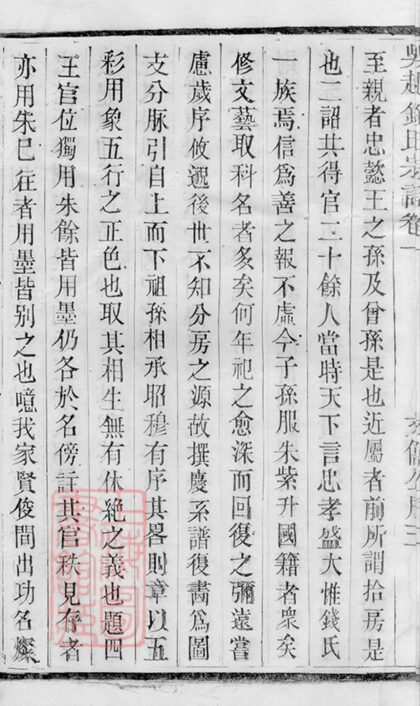 吳越錢氏宗譜卷一
至親者忠懿王之孫及曾孫是也近屬者前所謂拾房是
也二詔共得官二十餘人當時天下言忠孝盛大惟錢氏
一族焉信爲善之報不虛今子孫服朱紫升國籍者衆矣
修文藝取科名者多矣何年祀之愈深而回復之彌遠嘗
慮歲序攸邈後世不知分房之源故撰慶系譜復畵爲圖
支分脉引自上而下祖孫相承昭穆有序其畧則章以五
彩用象五行之正色也取其相生無有休絶之義也題四
王官位獨用朱餘皆用墨仍各於名傍註其官秩見存者
亦用朱巳往者用墨皆别之也噫我家賢俊間出功名燦